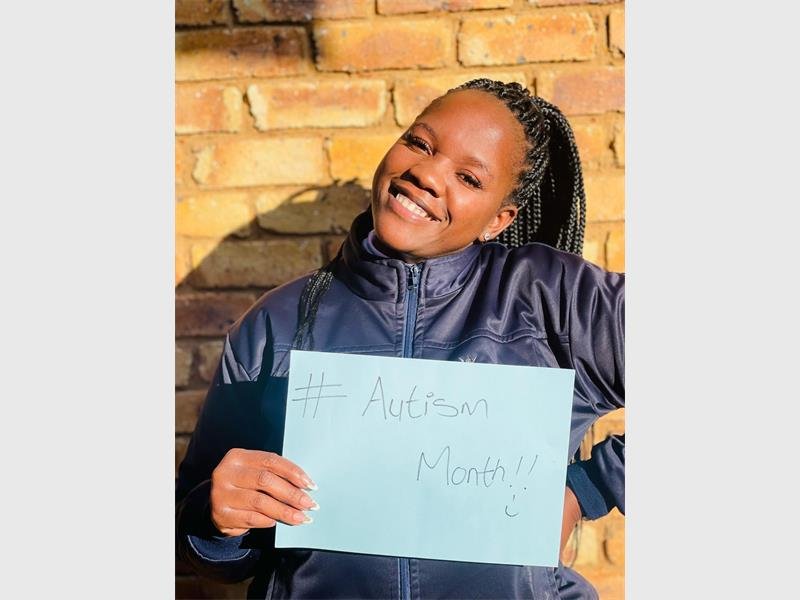 # Autism
Month!!